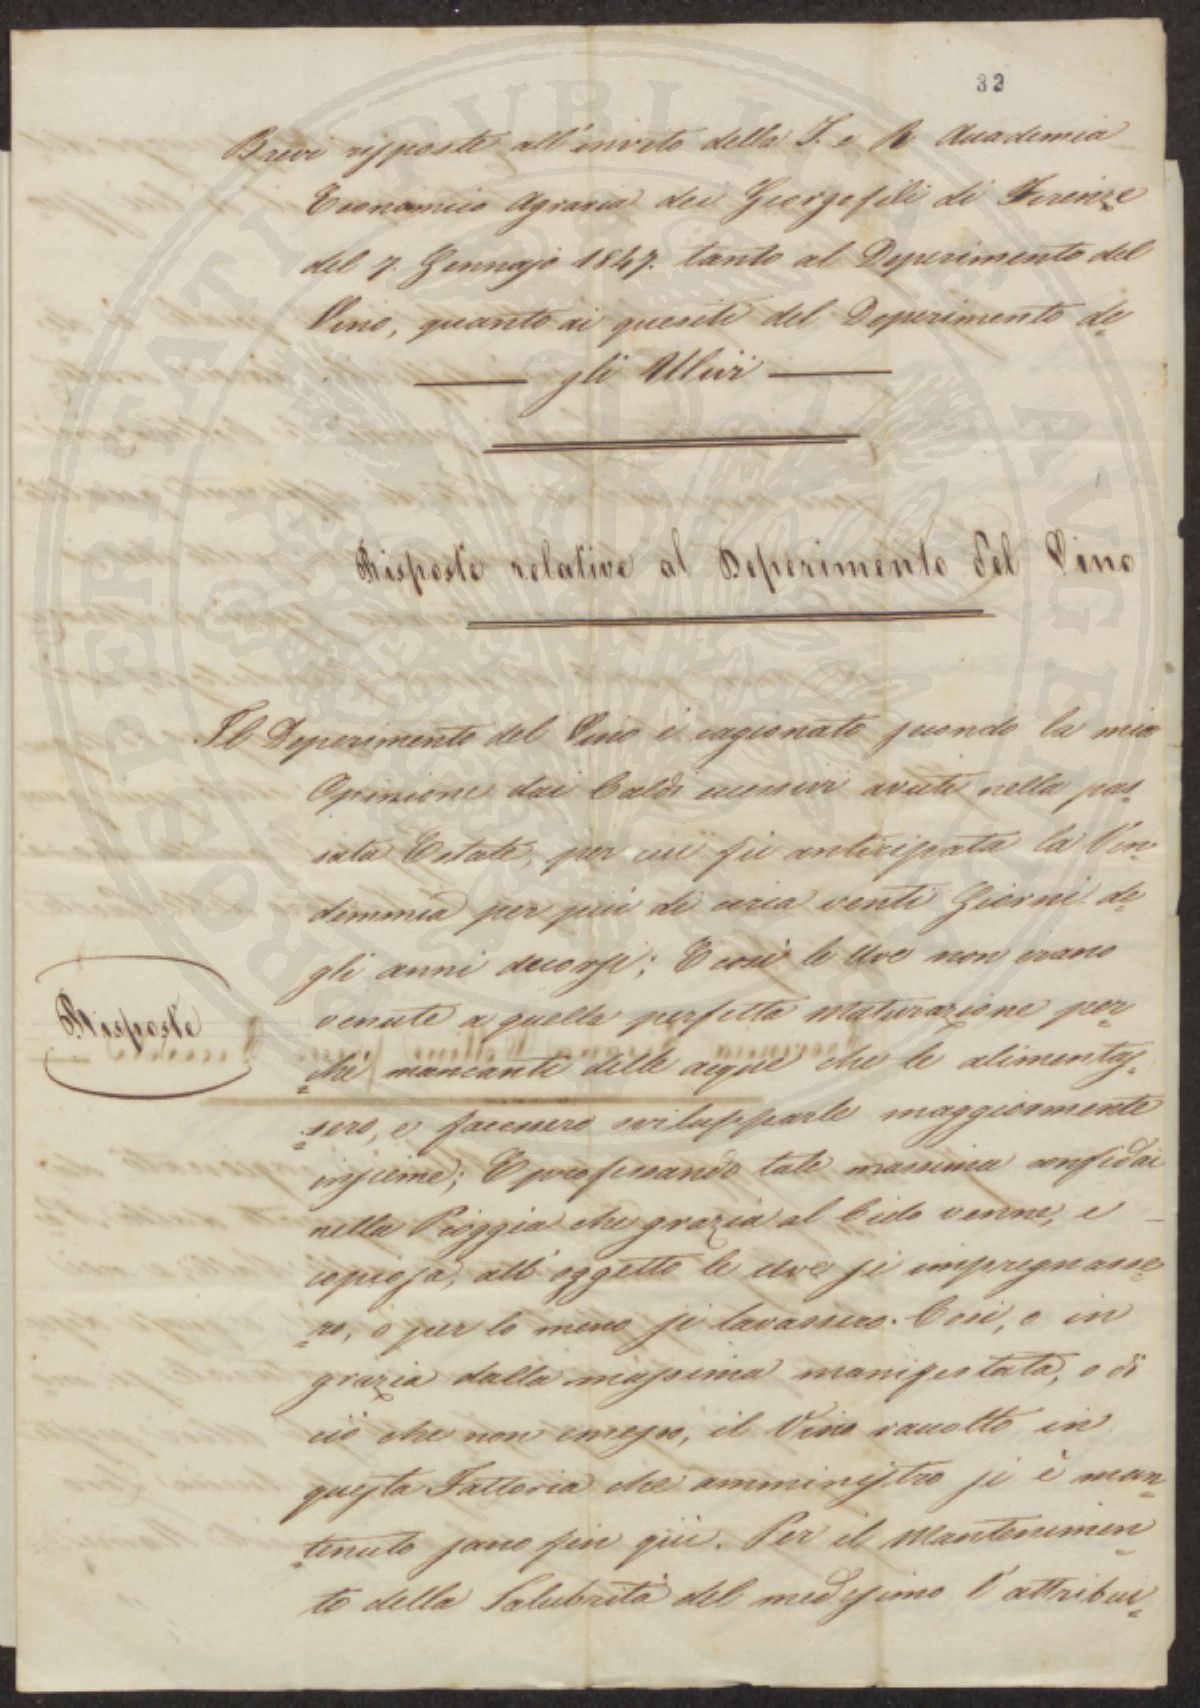 32
Brevi risposte all'invito della I. e R. Accademia
Economico Agraria dei Georgofili di Firenze
del 7. Gennajo 1847. tanto al Deperimento del
Vino, quanto ai quesiti del Deperimento de
gli Ulivi
Risposte relative al Deperimento del Vino
Il Deperimento del Vino è cagionato secondo la mia
Opinione dai Caldi eccessivi avuti nella pas
sata Estate, per cui fù anticipata la Ven
demmia per più di circa venti Giorni de
gli anni decorsi; E così le Uve non erano
venute a quella perfetta Maturazione per
Risposte
chè mancanti delle acque che le alimentas
sero, e facessero svilupparle maggiormente
insieme; E professando tale massima confidai
nella Pioggia che grazia al Cielo venne, e
copiosa, all'oggetto le Uve si impregnasse
ro, o per lo meno si lavassero. Così, o in
grazia dalla massima manifestata, o di
ciò che non conosco, il Vino raccolto in
questa Fattoria che amministro si è man
tenuto sano fin quì. Per il Mantenimen
to della Salubrità del medesimo l'attribui